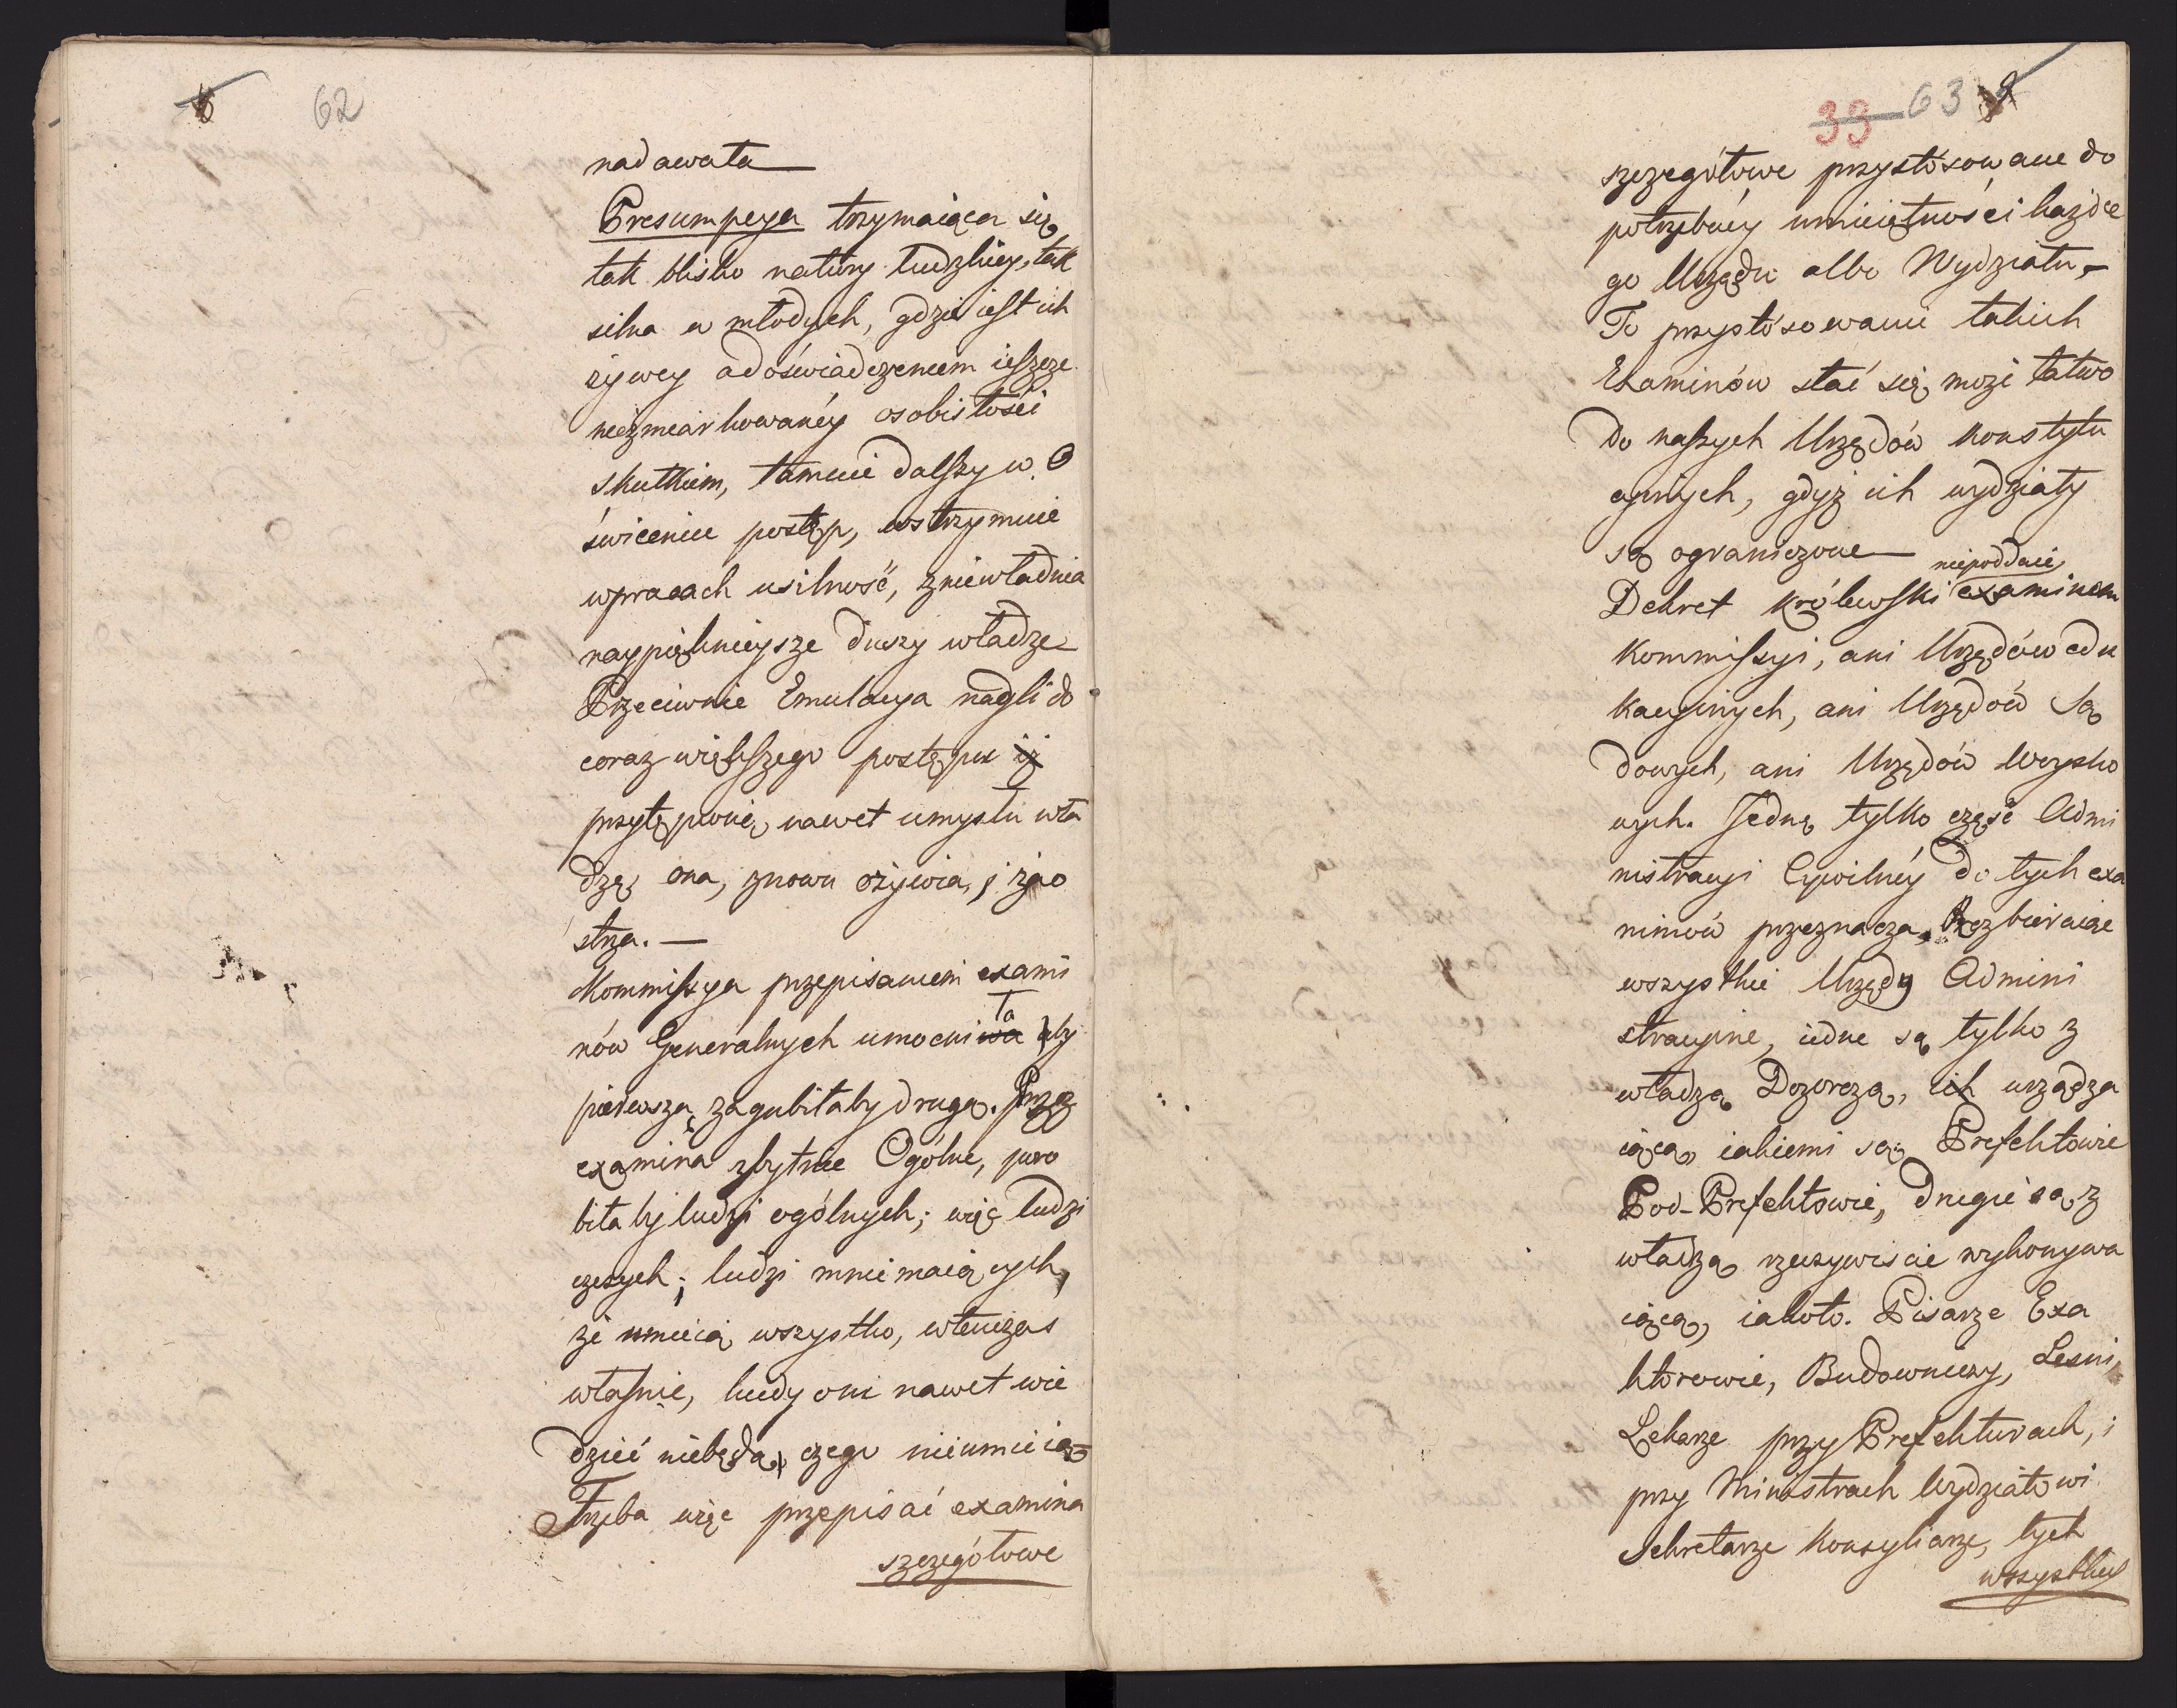 62
nadawała
Presumpcya trzymaiąca się
tak blisko natury ludzkiey, tak
silna w młodych, gdzie iest ich
żywey a doświadczeniem ieszcze
niezmiarkowanéy osobistości
skutkiem, tamuie dalszy w O
świeceniu postęp, wstrzymuie
wpracach usilność, zniewładnia
naypięknieysze duszy władze
Przeciwnie Emulacya nagli do
coraz większego postępu iż
przytępioną nawet umysłu wła
dzę ona, znowu ożywia, i zao
strza. —
Kommissya przepisaniem exami
nów Generalnych umocniła aby
pierwszą, zagubiłaby drugą. Przez
examina zbytnie Ogólne, poro
biłaby ludzi ogólnych; więc ludzi
czczych; ludzi mniemaiących,
że umieią wszystko, wtenczas
właśnie, kiedy oni nawet wie
dzieć niebędą, czego nieumieią
Trzeba więc przepisać examina
szczegółowe
33 63 9
szczegółowe przystósowane do
potrzebnéy umieiętności każde
go Urzędu albo Wydziału,—
To przystósowanie takich
Examinów stać się może łatwo
do naszych Urzędów Konstytu
cyinych, gdyż ich wydziały
są ograniczone—
niepoddaie
Dekret królewski examinom
Kommissyi, ani Urzędów edu
kacyinych, ani Urzędów Są
dowych, ani Urzędów Woysko
wych. Jedną tylko część Admi
nistracyi Cywilnéy do tych exa
minów przeznacza, Rozbieraiąc
wszystkie Urzędy Admini
stracyine, iedne są tylko z
władzą Dozorczą, ich urządza
iącą, iakiemi są, Prefektowie
Pod-Prefektowie, drugie są, z
władzą rzeczywiscie wykonywa
iącą, iakoto. Pisarze Exa
ktorowie, Budowniczy, Lesni,
Lekarze przy Prefekturach, i
przy Ministrach Wydziałowi
Sekretarze Konsyliarze, tych
wszystkich